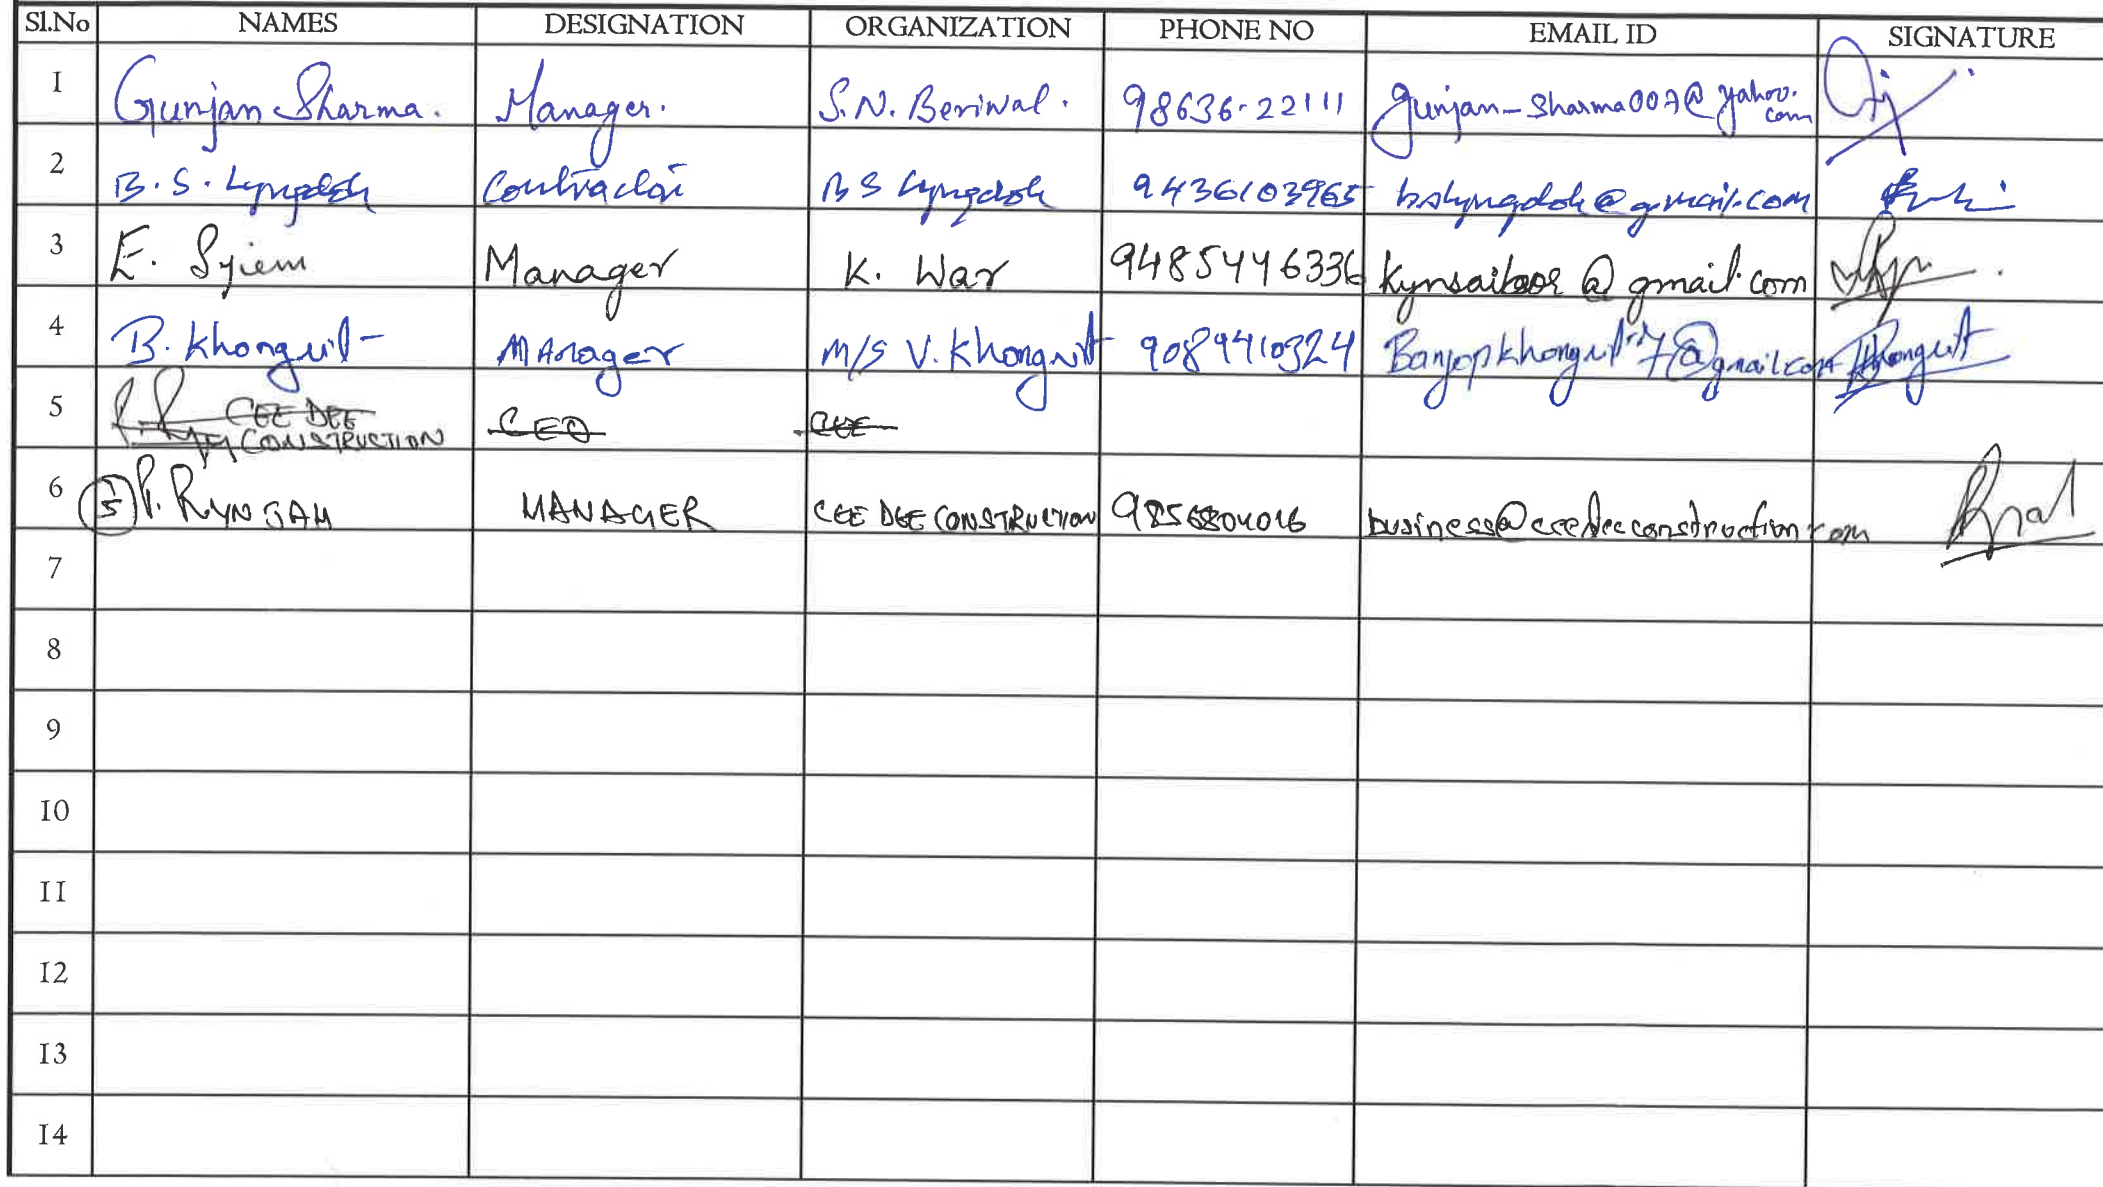 Sl.No NAMES DESIGNATION ORGANIZATION PHONE NO EMAIL ID SIGNATURE
1 Gunjan Sharma. Manager. S.N. Beriwal. 98636-22111 gunjan-sharma007@yahoo.
com
2 B.S. Lyngdoh Contractor BS Lyngdoh 9436103965 bslyngdoh@gmail.com
3 E. Syiem Manager K. War 9485446336 @gmail.com
4 B. Khongwit MAnager M/S V. Khongwit 9089410324 @gmail.com Khongwit
5 CEE DEE CEO CEE
CONSTRUCTION
6 5 P. RYNJAH MANAGER CEE DEE CONSTRUCTION 9856804016 business@ceedeeconstruction.com
7
8
9
10
11
12
13
14